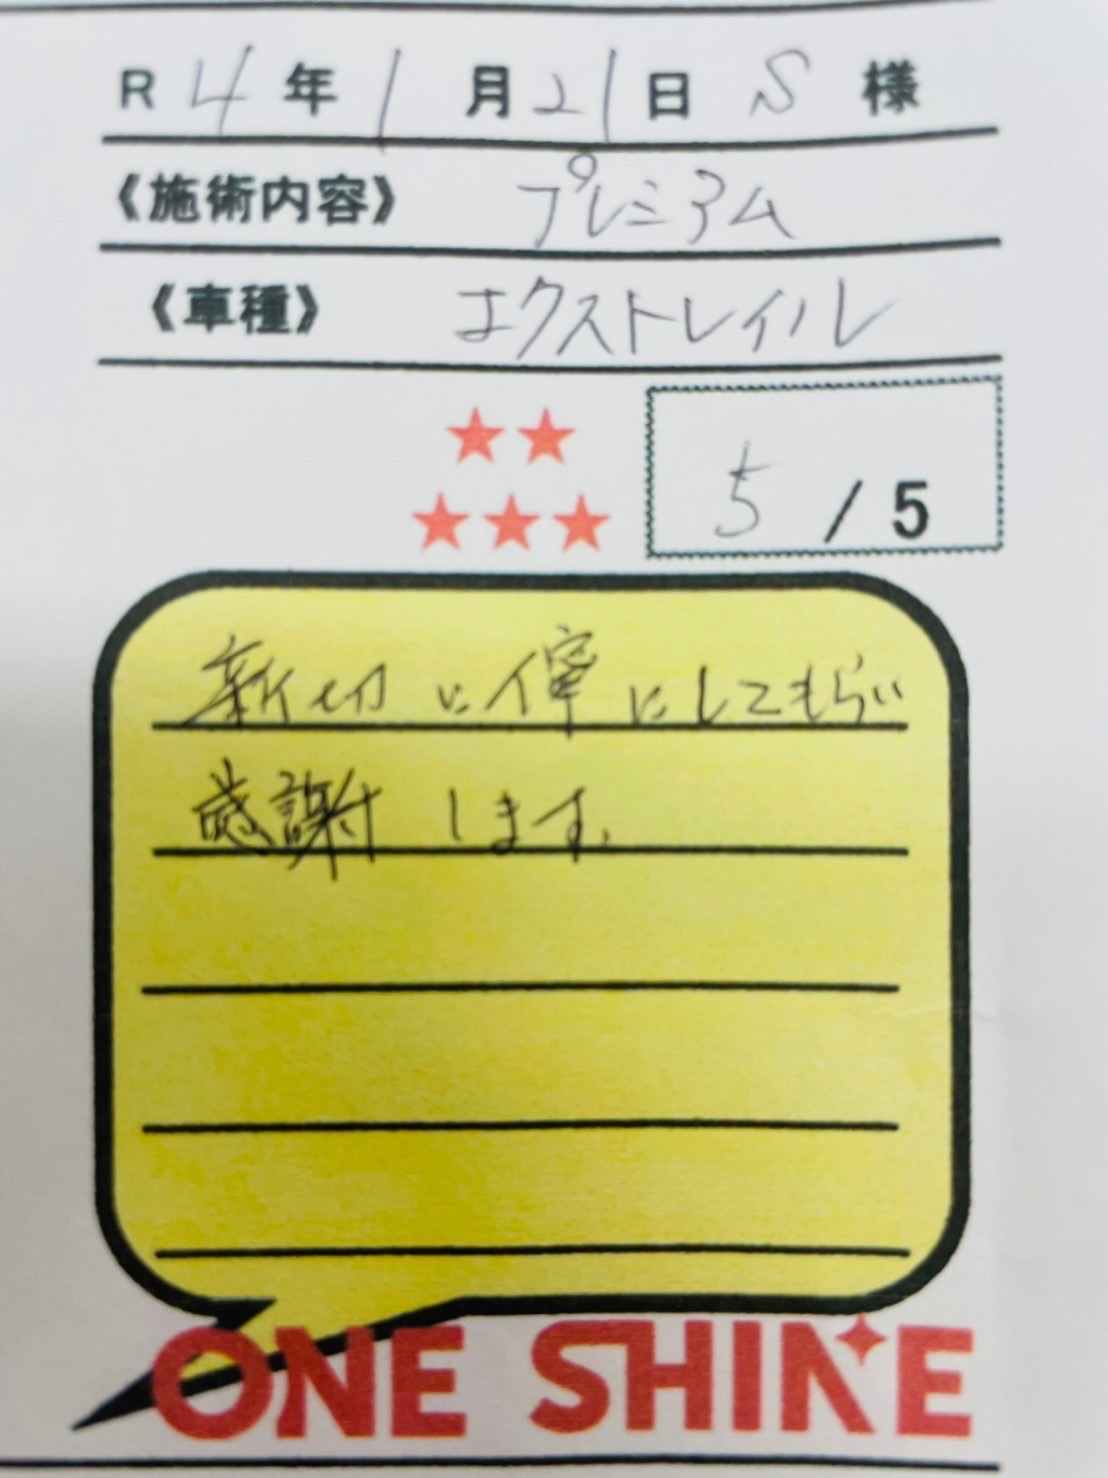 R 4 年 1 月 21 日 S 様
《施術内容》 プレミアム
《車種》 エクストレイル
5 / 5
新切に にしてもらい
感謝します。
ONE SHINE